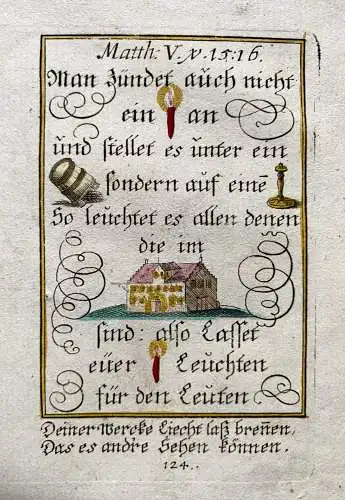 Matth: V. v. 15:16.
Man Zündet auch nicht
ein an
und stellet es unter ein
sondern auf einē
So leuchtet es allen denen
die im
sind: also Lasset
euer Leuchten
für den Leuten
Deiner Wercke Liecht laß breñen,
Das es andre Sehen können.
124..